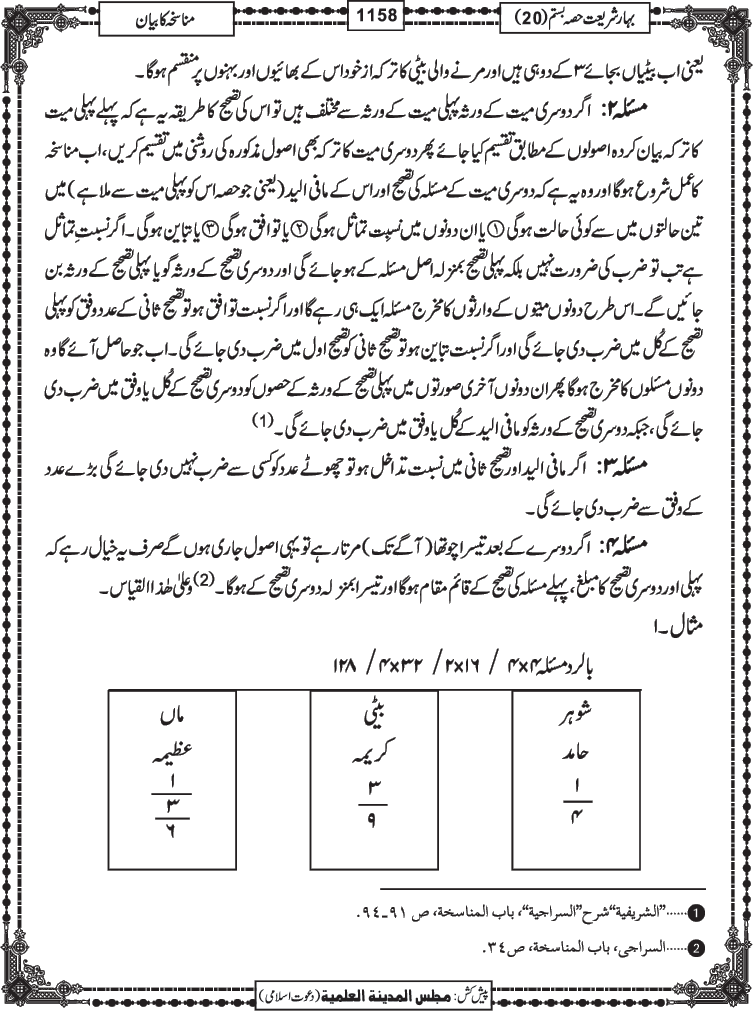 بہار شریعت حصہ بستم (20)
1158
مناسخہ کا بیان
یعنی اب بیٹیاں بجائے ۳ کے دو ہی ہیں اور مرنے والی بیٹی کا ترکہ ازخود اس کے بھائیوں اور بہنوں پر منقسم ہوگا۔
مسئلہ ۲: اگر دوسری میت کے ورثہ پہلی میت کے ورثہ سے مختلف ہیں تو اس کی تصحیح کا طریقہ یہ ہے کہ پہلے پہلی میت
کا ترکہ بیان کردہ اصولوں کے مطابق تقسیم کیا جائے پھر دوسری میت کا ترکہ بھی اصول مذکورہ کی روشنی میں تقسیم کریں، اب مناسخہ
کا عمل شروع ہوگا اور وہ یہ ہے کہ دوسری میت کے مسئلہ کی تصحیح اور اس کے مافی الید (یعنی جو حصہ اس کو پہلی میت سے ملا ہے) میں
تین حالتوں میں سے کوئی حالت ہوگی ① یا ان دونوں میں نسبت تماثل ہوگی ② یا توافق ہوگی ③ یا تباین ہوگی۔ اگر نسبتِ تماثل
ہے تب تو ضرب کی ضرورت نہیں بلکہ پہلی تصحیح بمنزلہ اصل مسئلہ کے ہو جائے گی اور دوسری تصحیح کے ورثہ گویا پہلی تصحیح کے ورثہ بن
جائیں گے۔ اس طرح دونوں میتوں کے وارثوں کا مخرج مسئلہ ایک ہی رہے گا اور اگر نسبت توافق ہو تو تصحیح ثانی کے عدد وفق کو پہلی
تصحیح کے کُل میں ضرب دی جائے گی اور اگر نسبت تباین ہو تو تصحیح ثانی کو تصحیح اول میں ضرب دی جائے گی۔ اب جو حاصل آئے گا وہ
دونوں مسئلوں کا مخرج ہوگا پھر ان دونوں آخری صورتوں میں پہلی تصحیح کے ورثہ کے حصوں کو دوسری تصحیح کے کُل یا وفق میں ضرب دی
جائے گی، جبکہ دوسری تصحیح کے ورثہ کو مافی الید کے کُل یا وفق میں ضرب دی جائے گی۔(1)
مسئلہ ۳: اگر مافی الید اور تصحیح ثانی میں نسبت تداخل ہو تو چھوٹے عدد کو کسی سے ضرب نہیں دی جائے گی بڑے عدد
کے وفق سے ضرب دی جائے گی۔
مسئلہ ۴: اگر دوسرے کے بعد تیسرا چوتھا (آگے تک) مرتا رہے تو یہی اصول جاری ہوں گے صرف یہ خیال رہے کہ
پہلی اور دوسری تصحیح کا مبلغ، پہلے مسئلہ کی تصحیح کے قائم مقام ہوگا اور تیسرا بمنزلہ دوسری تصحیح کے ہوگا۔(2) وعلیٰ ھٰذا القیاس۔
مثال۔۱
بالرد مسئلہ ۴×۴ / ۱۶×۲ / ۳۲×۴ / ۱۲۸
شوہر
حامد
۱
۴
بیٹی
کریمہ
۳
۹
ماں
عظیمہ
۱
۳
۶
1......"الشريفية" شرح "السراجية"، باب المناسخة، ص ٩١ـ٩٤.
2......السراجی، باب المناسخة، ص٣٤.
پیش کش: مجلس المدينة العلمية (دعوت اسلامی)